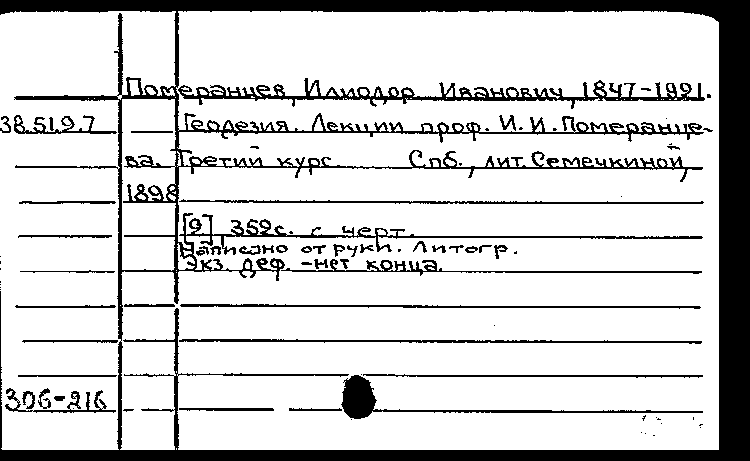 Померанцев, Илиодор Иванович, 1847-1921.
38.519.7 Геодезия. Лекции проф. И.И. Померанце-
ва. Третий курс. Спб., лит. Семечкиной,
1898
[9] 352с. с черт.
Написано от руки. Литогр.
Экз. деф. - нет конца.
306-216